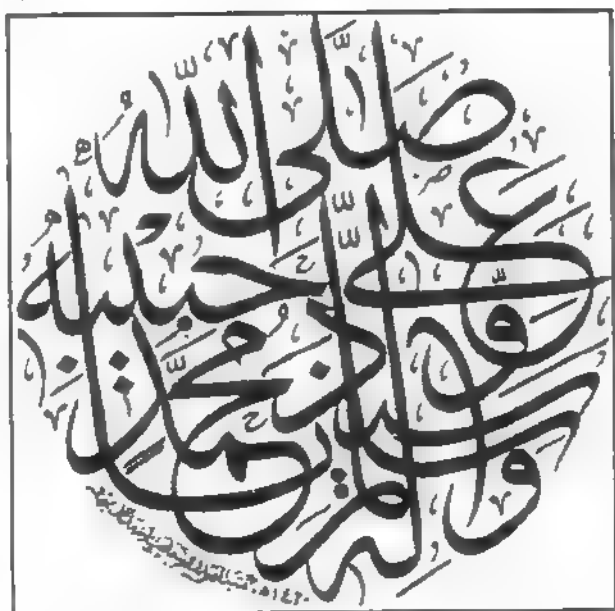 صَلَّى اللّٰهُ
عَلَى حَبِيْبِهِ
سَيِّدِنَا مُحَمَّدٍ
وَآلِهِ وَسَلَّمَ